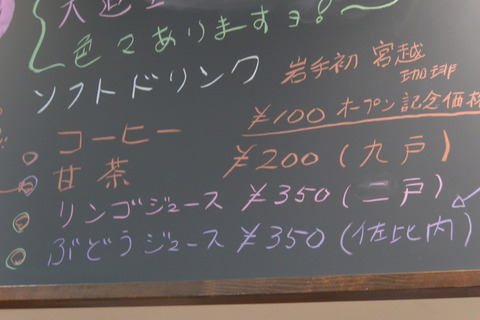 色々ありますョ!〜
ソフトドリンク
岩手初 宮越
珈琲
コーヒー ¥100 オープン記念価格
甘茶 ¥200(九戸)
リンゴジュース ¥350(二戸)
ぶどうジュース ¥350(佐比内)